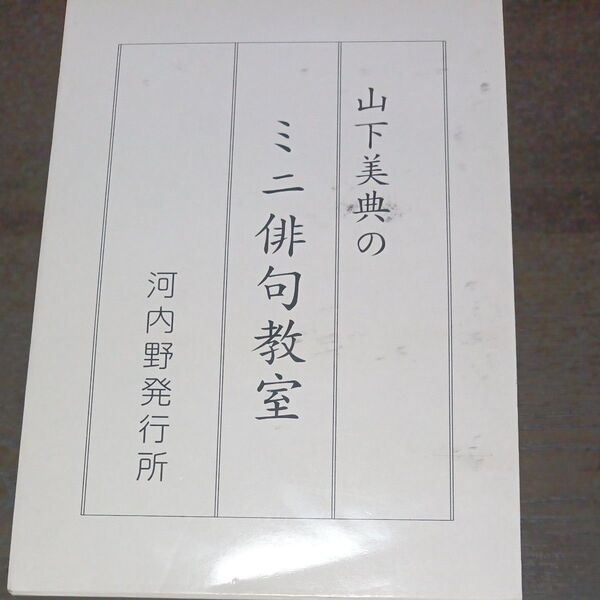 山下美典の
ミニ俳句教室
河内野発行所